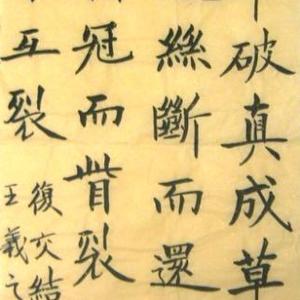 破真成草
絲斷而還
冠而眥裂
互裂
復交結
王羲之